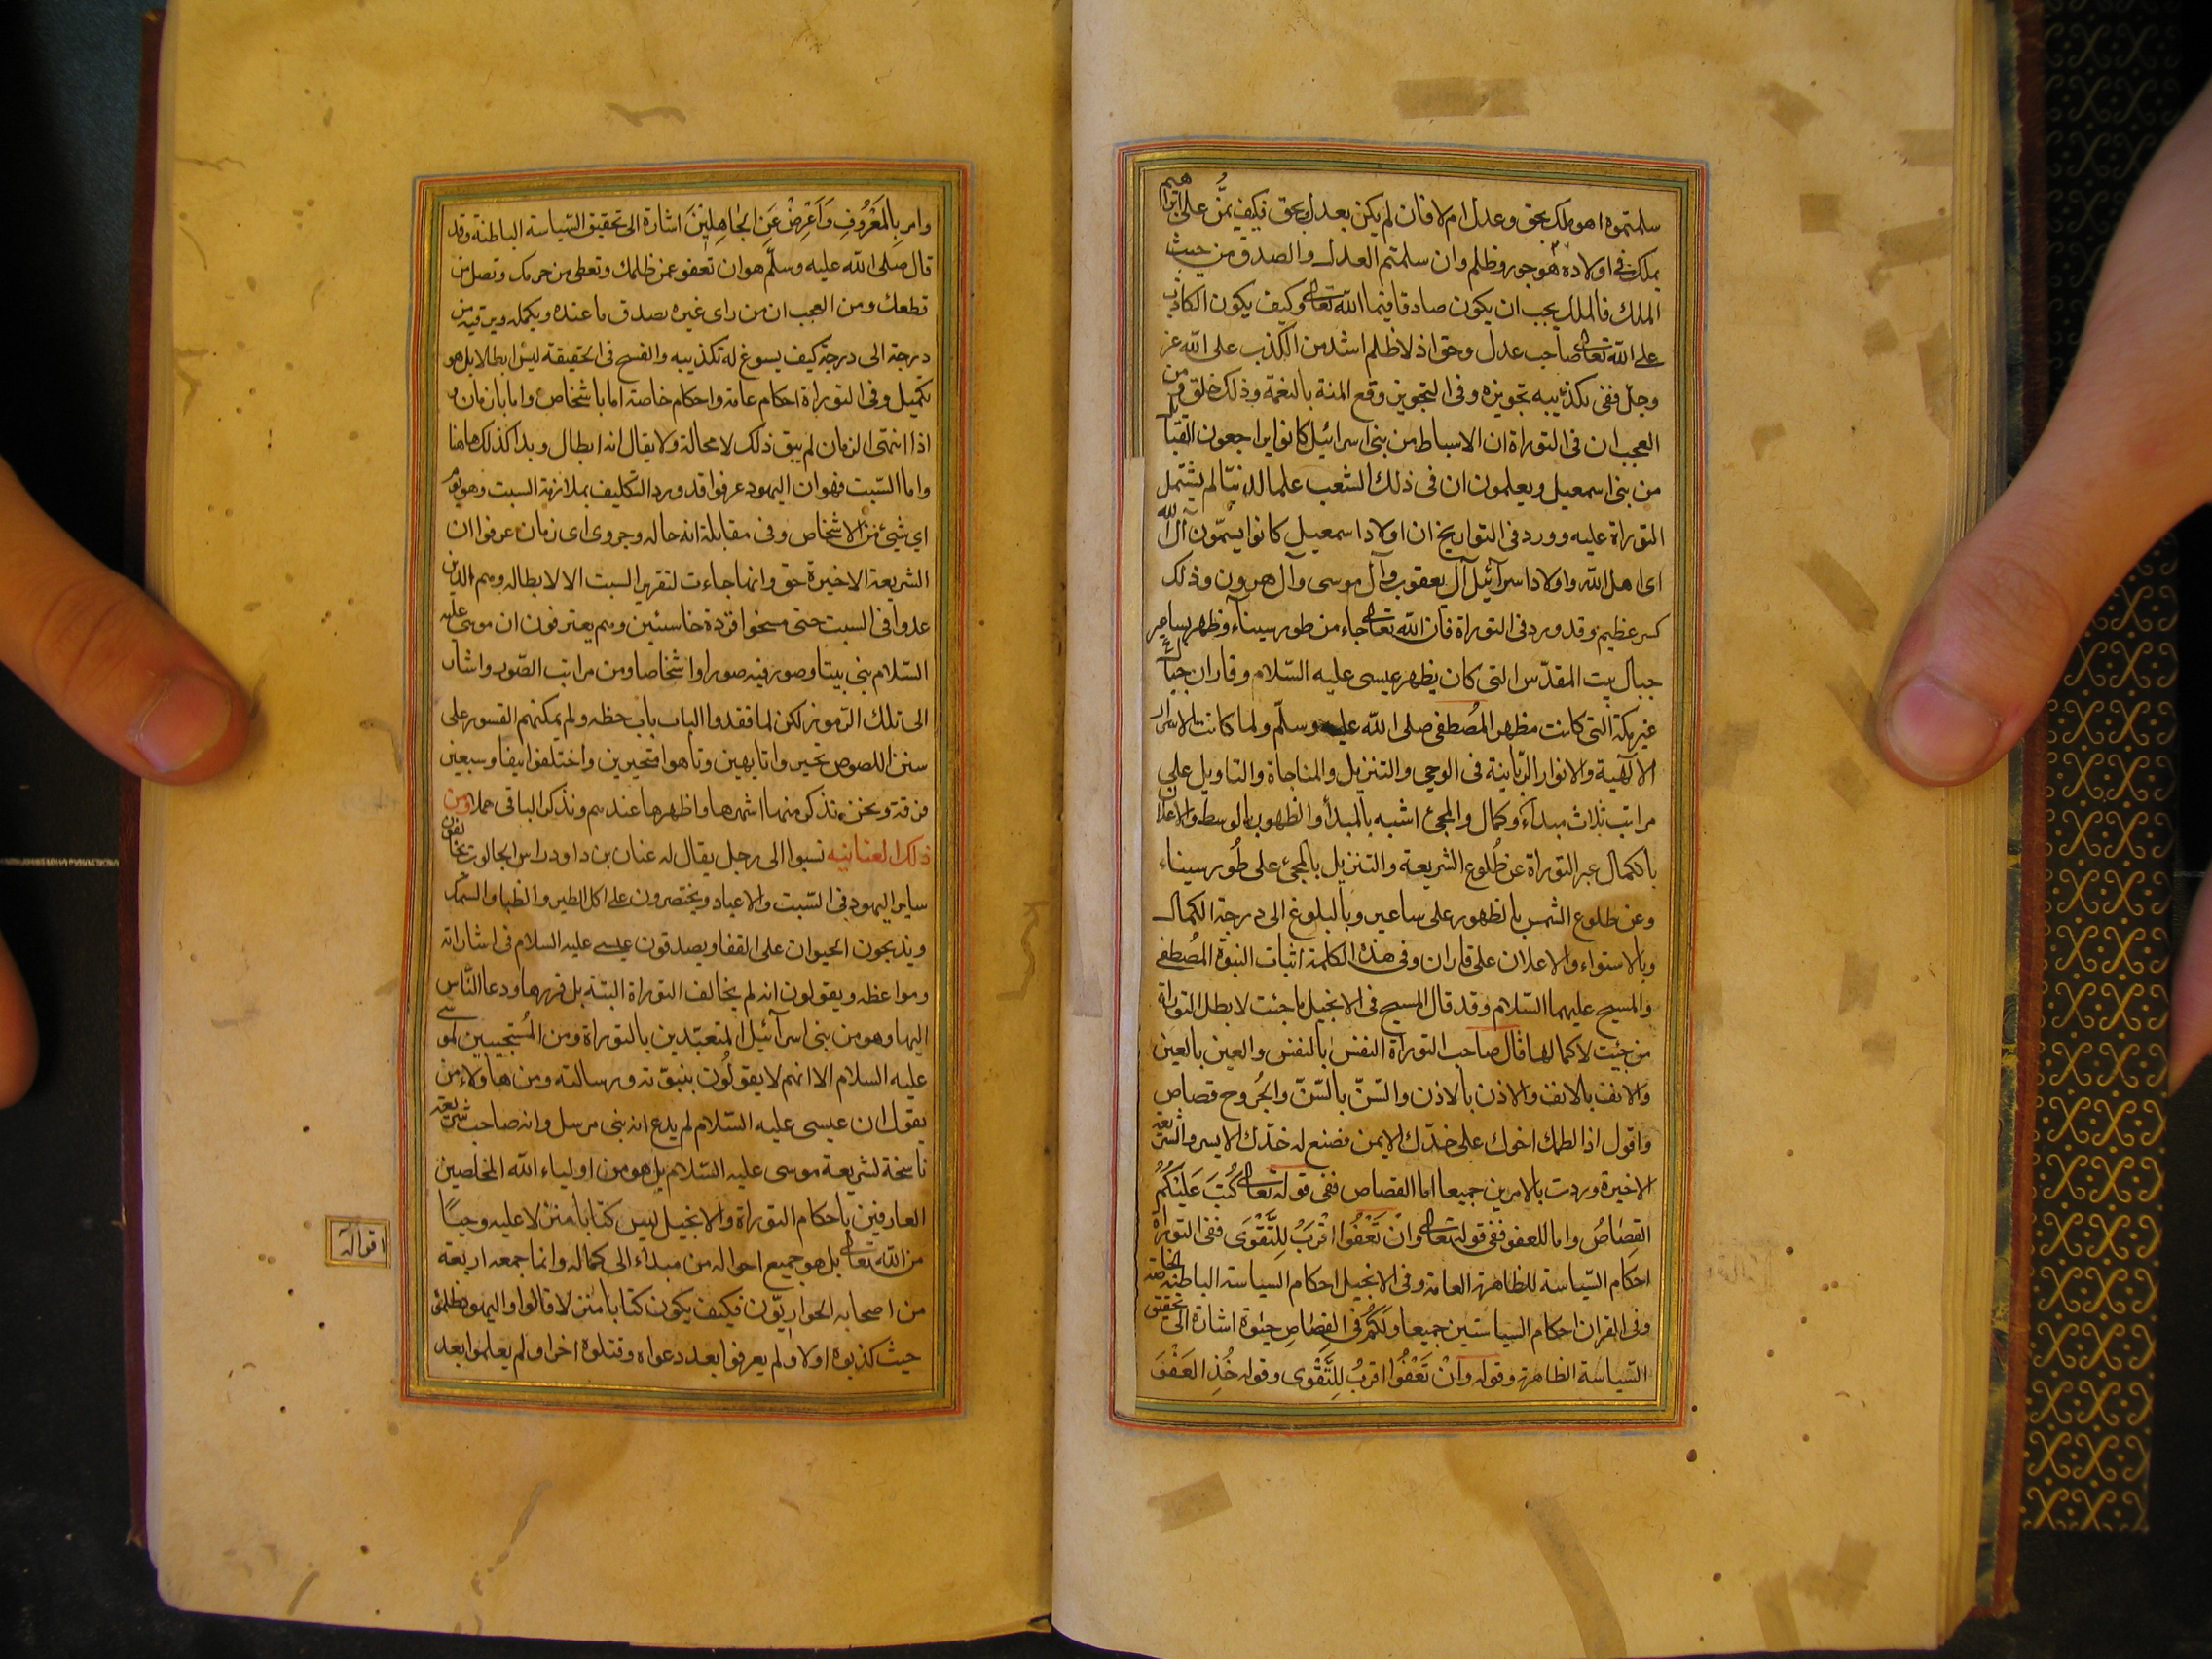 سلتموه اهو ملك بحق وعدل ام لا فان لم يكن بعدل وبحق فكيف يمنّ على ابراهيم
بملك فى اولاده هو جور وظلم وان سلمتم العدل والصدق من حيث
الملك فالملك يجب ان يكون صادقا فيما الله تعالى وكيف يكون الكاذب
على الله تعالى صاحب عدل وحق اذ لا ظلم اشد من الكذب على الله عز
وجل ففى تكذيبه تجويزه وفى التجويز وقع المنة بالنعمة وذلك خلق ومن
العجب ان فى التوراة ان الاسباط من بنى اسرائيل كانوا يراجعون القبائل
من بنى اسمعيل ويعلمون ان فى ذلك الشعب علما لدنيّا لم يشتمل
التوراة عليه وورد فى التواريخ ان اولاد اسمعيل كانوا يسمّون آل الله
اى اهل الله واولاد اسرآئيل آل يعقوب وآل موسى وآل هرون وذلك
كسر عظيم وقد ورد فى التوراة فان الله تعالى جاء من طور سيناء وظهر بساعير
جبال بيت المقدّس التى كان يظهر عيسى عليه السّلام وفاران جبال
غير مكة التى كانت مظهر المُصطفى صلى الله عليه وسلّم ولما كانت الاسرار
الآلهية والانوار الرّبانية فى الوحى والتنزيل والمناجاة والتاويل على
مراتب ثلاث مبداء وكمال والمجئ اشبه بالمبدأ والظهور بالوسط والاعلان
بالكمال عبر التوراة عن طُلوع الشريعة والتنزيل بالمجئ على طُور سيناء
وعن طلوع الشمس بالظهور على ساعير وبالبلوغ الى درجة الكمال
وبالاستواء والاعلان على فاران وفى هذه الكلمة اثبات النبوة المُصطفى
والمسيح عليهما السّلام وقد قال المسيح فى الانجيل ما جئت لابطل التوراة
من جئت لاكمالها قال صاحب التوراة النفس بالنفس والعين بالعين
والانف بالانف والاذن بالاذن والسّنّ بالسّنّ والجُروح قصاص
واقول اذا لطمك اخوك على خدّك الايمن فضع له خدّك الايسر والشريعة
الاخيرة وردت بالامرين جميعا اما القصاص ففى قوله تعالى كُتِبَ عَلَيْكُمُ
القِصَاصُ واما للعفو ففى قوله تعالى وانْ تَعْفُوا اقْرَبُ لِلتَّقْوَى ففى التوراة
احكام السّياسة للظاهرة العامة وفى الانجيل احكام السياسة الباطنة الخاصة
وفى القران احكام السياستين جميعا ولَكُمْ فى القِصَاصِ حيٰوة اشارة الى تحقيق
السّياسة الظاهرة وقوله وانْ تَعْفُوا اقربُ لِلتَّقْوٰى وقوله خُذِ العَفْوَ
وامر بِالمَعْرُوفِ وَاَعْرِضْ عَنِ الجَاهِلِيْنَ اشارة الى تحقيق السّياسة الباطنة وقد
قال صلى الله عليه وسلّم هو ان تعفو عمن ظلمك وتعطى من حرمك وتصل من
قطعك ومن العجب ان من راى غيره يصدق ما عنده ويكمله ويرقيه من
درجة الى درجة كيف يسوغ له تكذيبه والفسخ فى الحقيقة ليس ابطالا بل هو
تكميل وفى التوراة احكام عامة واحكام خاصة اما باشخاص واما بازمان و
اذا انتهى الزمان لم يبق ذلك لا محالة ولا يقال انه ابطال وبدا كذلك هاهنا
واما السّبت فهو ان اليهود عرفوا قد ورد التكليف بملازمة السبت وهو يوم
اى شئ من الاشخاص وفى مقابلة انه حاله وجروى اى زمان عرفوا ان
الشريعة الاخيرة حق وانها جاءت لتقرير السبت الا لابطاله وهم الذين
عدوا فى السبت حتى مسخوا قردة خاسئين وهم يعترفون ان موسى عليه
السّلام بنى بيتا وصور فيه صورا واشخاصا ومن مراتب الصّور واشار
الى تلك الرّموز لكن لما فقدوا الباب باب حطه ولم يمكنهم القسور على
سنن اللصوص تحيروا تايهين وتاهوا متحيرين واختلفوا نيفا وسبعين
فرقة ونحن نذكر منها اشهرها واظهرها عندهم ونذكر الباقى هملا ومن
ذلك العنانيه نسبوا الى رجل يقال له عنان بن داود راس الجالوت يخالفون
ساير اليهود فى السّبت والاعياد ويختصرون على اكل الطير والظبا والسمك
ويذبحون الحيوان على القفا ويصدقون عيسى عليه السلام فى اشاراته
ومواعظه ويقولون انه لم يخالف التوراة البتة بل قررها ودعا النّاس
اليها وهو من بنى اسرآئيل المتعبّدين بالتوراة ومن المُستجيبين لموسى
عليه السلام الا انهم لا يقولُون بنبوّته ورسالته ومن هاولاء من
يقول ان عيسى عليه السّلام لم يدع انه نبى مرسل وانه صاحب شريعة
ناسخة لشريعة موسى عليه السّلام بل هو من اولياء الله المخلصين
العارفين باحكام التوراة والانجيل ليس كتابا منزلا عليه وحيًا
من الله تعالى بل هو جميع احواله من مبداء الى كماله وانما جمعه اربعة
من اصحابه الحواريّون فكيف يكون كتابا منزلا قالوا واليهود ظلموه
حيث كذبوه اولا ولم يعرفوا بعد دعواه وقتلوه اخرا ولم يعلموا بعد
اقواله